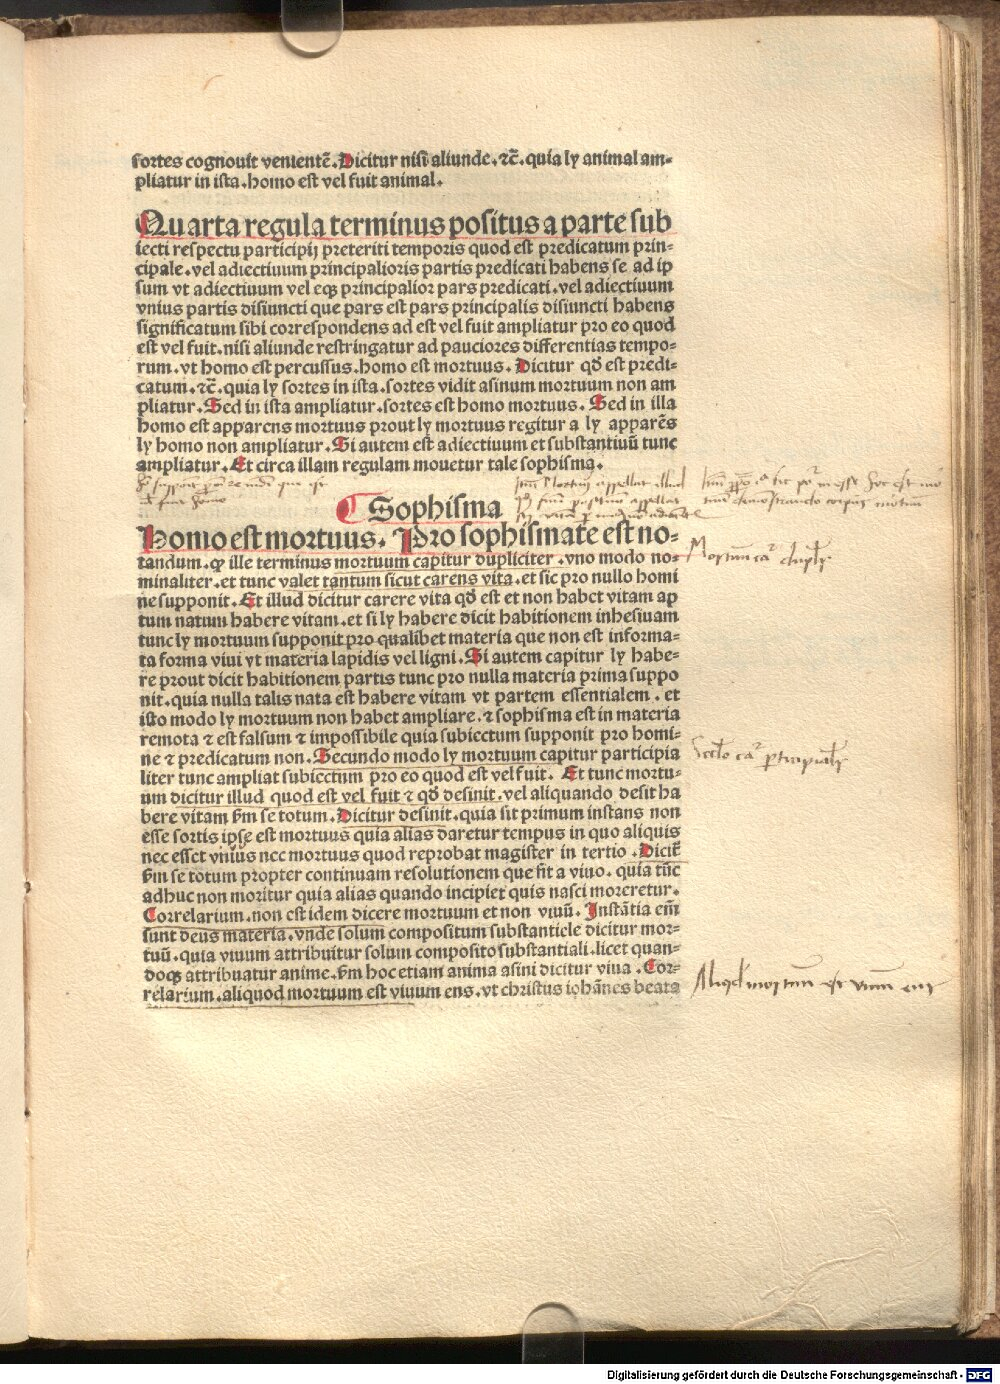 sortes cognouit venientē. Dicitur nisi aliunde. ⁊c̄. quia ly animal am-
pliatur in ista. homo est vel fuit animal.
Quarta regula terminus positus a parte sub
iecti respectu participij preteriti temporis quod est predicatum prin-
cipale. vel adiectiuum principalioris partis predicati habens se ad ip
sum vt adiectiuum vel eque principalior pars predicati. vel adiectiuum
vnius partis disiuncti que pars est pars principalis disiuncti habens
significatum sibi correspondens ad est vel fuit ampliatur pro eo quod
est vel fuit. nisi aliunde restringatur ad pauciores differentias tempo-
rum. vt homo est percussus. homo est mortuus. Dicitur qđ est predi-
catum. ⁊c̄. quia ly sortes in ista. sortes vidit asinum mortuum non am
pliatur. Sed in ista ampliatur. sortes est homo mortuus. Sed in illa
homo est apparens mortuus prout ly mortuus regitur a ly apparēs
ly homo non ampliatur. Si autem est adiectiuum et substantiuū tunc
ampliatur. Et circa illam regulam mouetur tale sophisma.
Sophisma
Homo est mortuus. Pro sophismate est no-
tandum. ꝙ ille terminus mortuum capitur dupliciter. vno modo no-
minaliter. et tunc valet tantum sicut carens vita. et sic pro nullo homi
ne supponit. Et illud dicitur carere vita qđ est et non habet vitam ap
tum natum habere vitam. et si ly habere dicit habitionem inhesiuam
tunc ly mortuum supponit pro qualibet materia que non est informa-
ta forma viui vt materia lapidis vel ligni. Si autem capitur ly habe-
re prout dicit habitionem partis tunc pro nulla materia prima suppo
nit. quia nulla talis nata est habere vitam vt partem essentialem. et
isto modo ly mortuum non habet ampliare. ⁊ sophisma est in materia
remota ⁊ est falsum ⁊ impossibile quia subiectum supponit pro homi-
ne ⁊ predicatum non. Secundo modo ly mortuum capitur participia
liter tunc ampliat subiectum pro eo quod est vel fuit. Et tunc mortu-
um dicitur illud quod est vel fuit ⁊ qđ desinit. vel aliquando desit ha
bere vitam ẜm se totum. Dicitur desinit. quia sit primum instans non
esse sortis ipse est mortuus quia alias daretur tempus in quo aliquis
nec esset viuus nec mortuus quod reprobat magister in tertio. Dicit̄
ẜm se totum propter continuam resolutionem que fit a viuo. quia tūc
adhuc non moritur quia alias quando incipiet quis nasci moreretur.
Correlarium. non est idem dicere mortuum et non viuū. Instātia em̄
sunt deus materia. vnde solum compositum substantiele dicitur mor-
tuū. quia viuum attribuitur solum composito substantiali. licet quan-
doqꝫ attribuatur anime. ẜm hoc etiam anima asini dicitur viua. Cor-
relarium. aliquod mortuum est viuum ens. vt christus iohānes beata
Digitalisierung gefördert durch die Deutsche Forschungsgemeinschaft - DFG